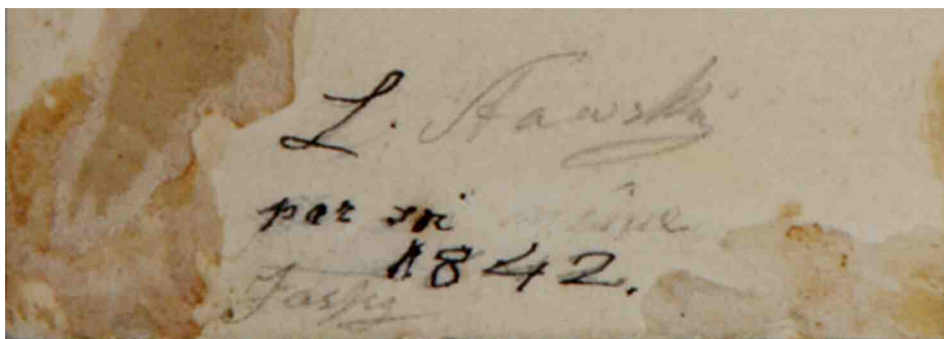 L. Stawski
par soi même
1842.
Jassy